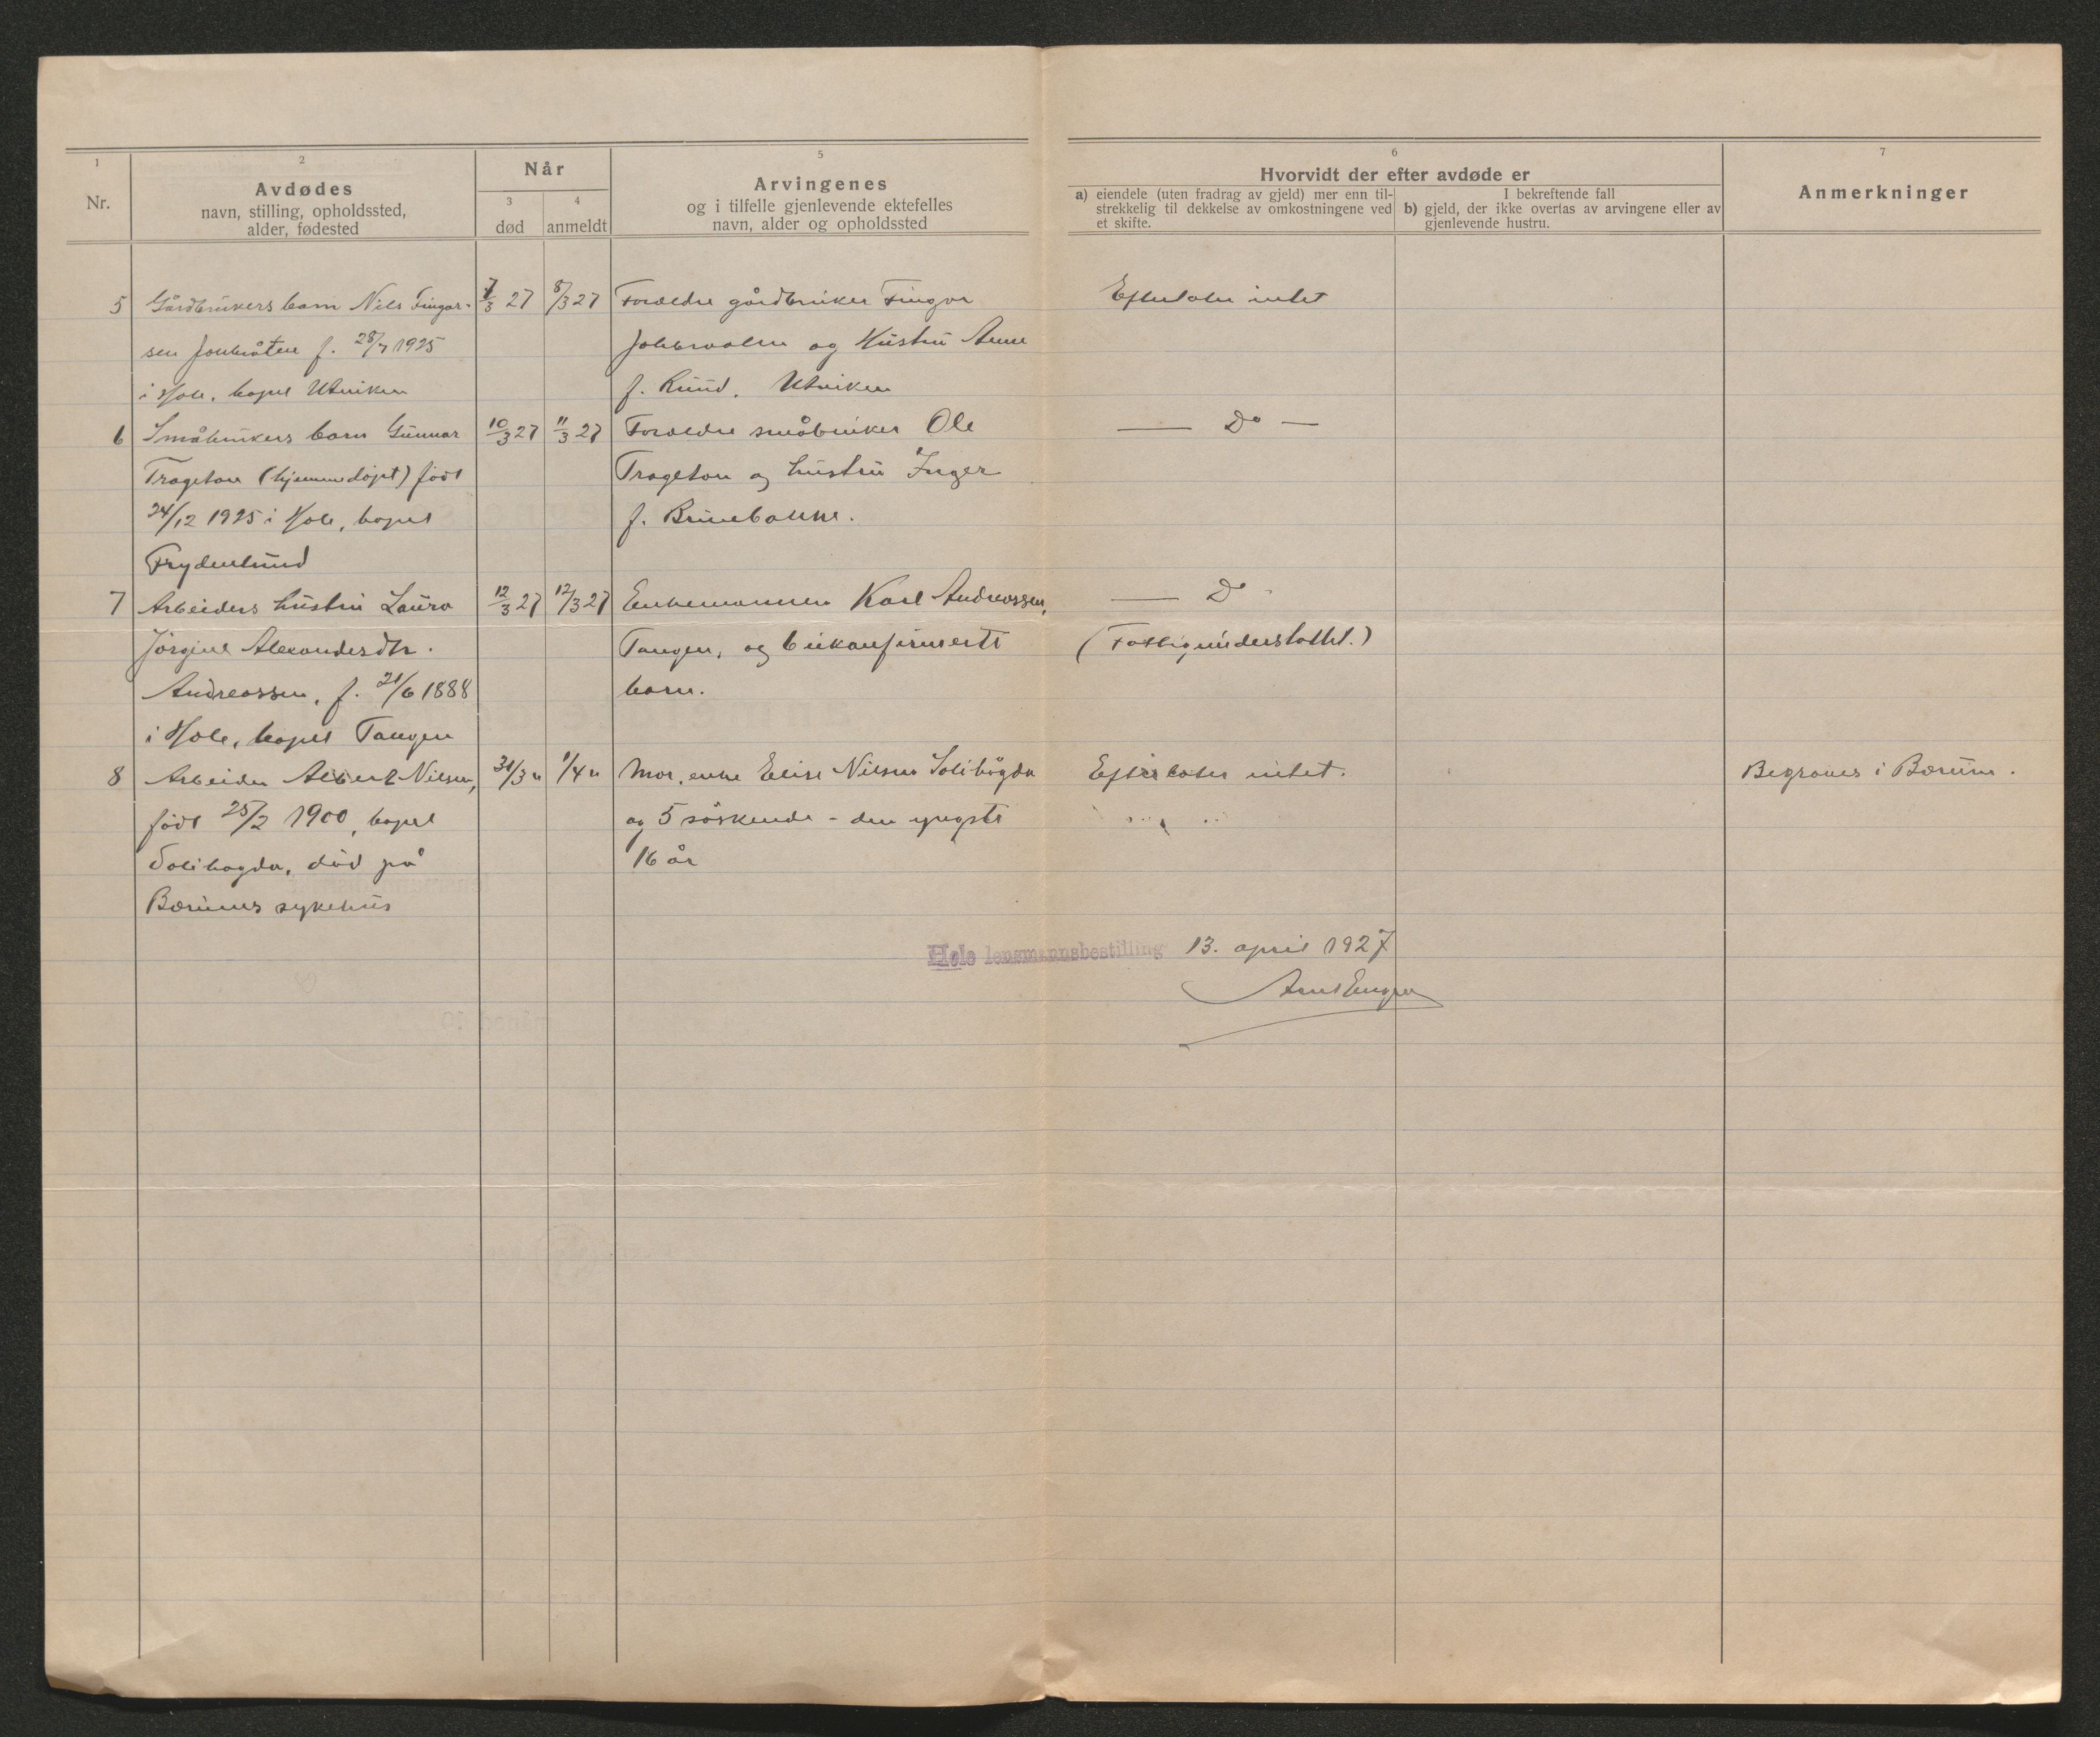 1
2
Avdødes
navn, stilling, opholdssted,
alder, fødested
Når
3
død
4
anmeldt
5
Arvingenes
og i tilfelle gjenlevende ektefelles
navn, alder og opholdssted
6
Hvorvidt der efter avdøde er
a) eiendele (uten fradrag av gjeld) mer enn til-
strekkelig til dekkelse av omkostningene ved
et skifte.
I bekreftende fall
b) gjeld, der ikke overtas av arvingene eller av
gjenlevende hustru.
7
Anmerkninger
Nr.
5 Gårdbrukers barn Nils Fingar- 7/3 27 8/3 27 Foreldre gårdbruker Fingar Efterlater intet
sen f. 28/7 1925 og Hustru Anne
i Hole, bopel Utviken f. Ruud, Utviken
6 Småbrukers barn Gunnar 10/3 27 11/3 27 Foreldre småbruker Ole — Do —
Trageton (hjemmedøpt) født Trageton og hustru Inger
24/12 1925 i Hole, bopel f.
Frydenlund
7 Arbeiders hustru Laura 12/3 27 12/3 27 Enkemannen Karl Andreassen, — Do
Jörgine Alexandersdtr. Tangen, og 6 ukonfirmerte (Fattigunderstøttet.)
Andreassen, f. 21/6 1888 barn.
i Hole, bopel Tangen
8 Arbeider Albert Nilsen, 31/3 " 1/4 " Mor, enke Elise Nilsen Solihögda Efterlater intet. Begraves i Bærum.
født 25/2 1900, bopel og 5 söskende - den yngste
Solihogda, död på 16 år
Bærums sykehus
Hole lensmannsbestilling 13. april 1927